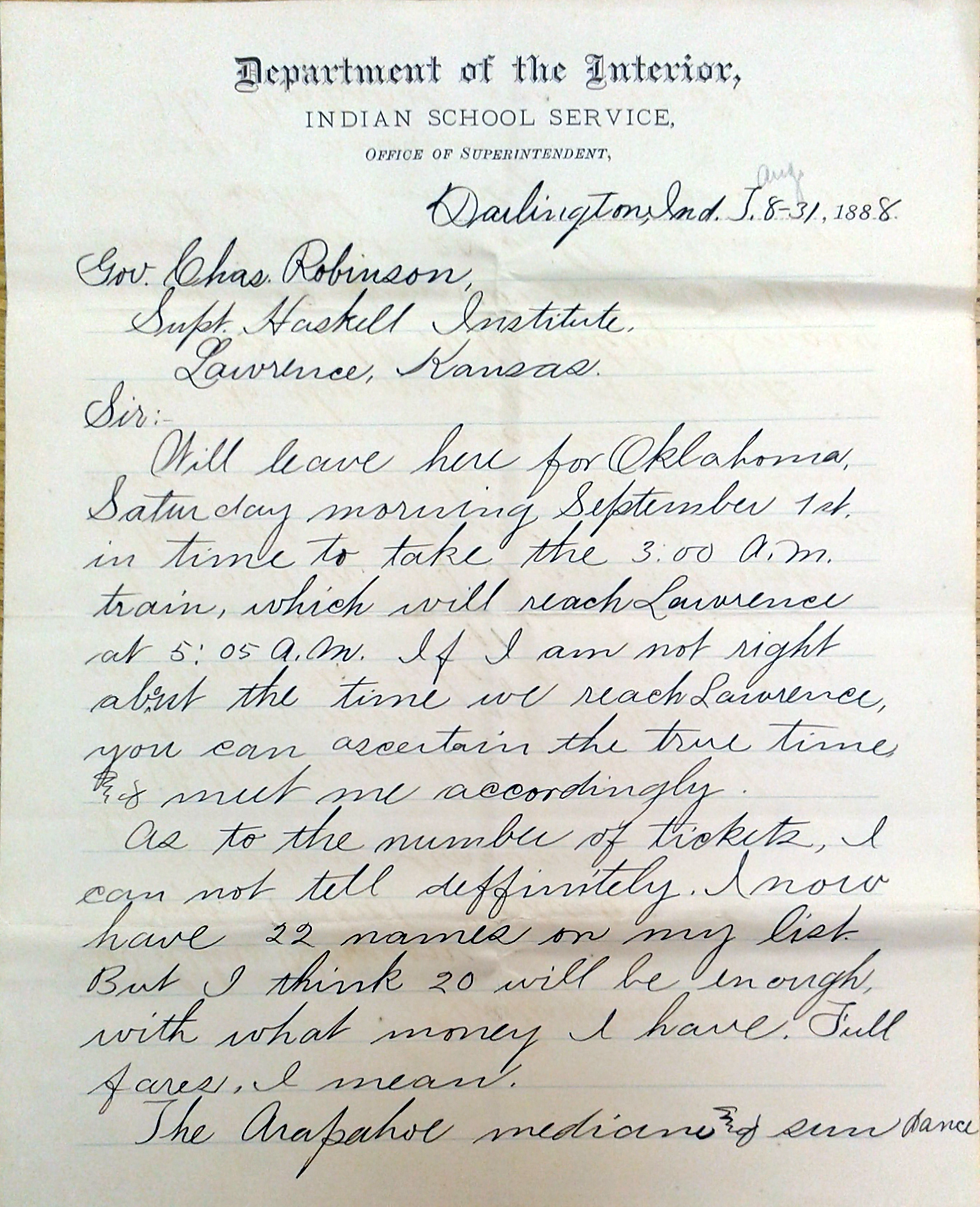 Department of the Interior,
INDIAN SCHOOL SERVICE,
OFFICE OF SUPERINTENDENT,
Aug
Darlington, Ind. T. 8-31, 1888.
Gov. Chas. Robinson,
Supt. Haskell Institute,
Lawrence, Kansas.
Sir:-
Will leave here for Oklahoma,
Saturday morning September 1st.
in time to take the 3:00 A.M.
train, which will reach Lawrence
at 5:05 A.M. If I am not right
about the time we reach Lawrence,
you can ascertain the true time,
& meet me accordingly.
As to the number of tickets, I
can not tell deffinitely. I now
have 22 names on my list.
But I think 20 will be enough,
with what money I have. Full
fares, I mean.
The Arapahoe medicine & sun dance